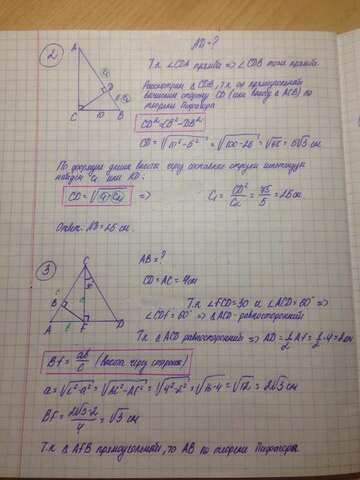 2
AD = ?
Т.к. ∠CDA прямой => ∠CDB тоже прямой.
Рассмотрим △ CDB, т.к. он прямоугольный
вычислим сторону CD (или высоту △ ACB) по
теореме Пифагора
CD² = CB² - DB²
CD = √10² - 5² = √100 - 25 = √75 = 5√3 см
A
C
D
B
10
По формуле длина высоты через составные отрезки гипотенузы
найдем C₁ или AD:
CD = √C₁·C₂ =>
C₁ = CD²/C₂ = 75/5 = 15 см.
3
AB = ?
CD = AC = 4 см
Т.к. ∠FCD = 30 и ∠ACD = 60° =>
∠CDF = 60° => △ ACD - равносторонний
Т.к. △ ACD равносторонний =>
C
B
A
F
D
Bf = ab/c (высота через стороны)
a = √c² - a² = √AC² - AF² = √4² - 2² = √16 - 4 = √12 = 2√3 см
Bf = 2√3·2/4 = √3 см
Т.к. △ AfB прямоугольный, то AB по теореме Пифагора